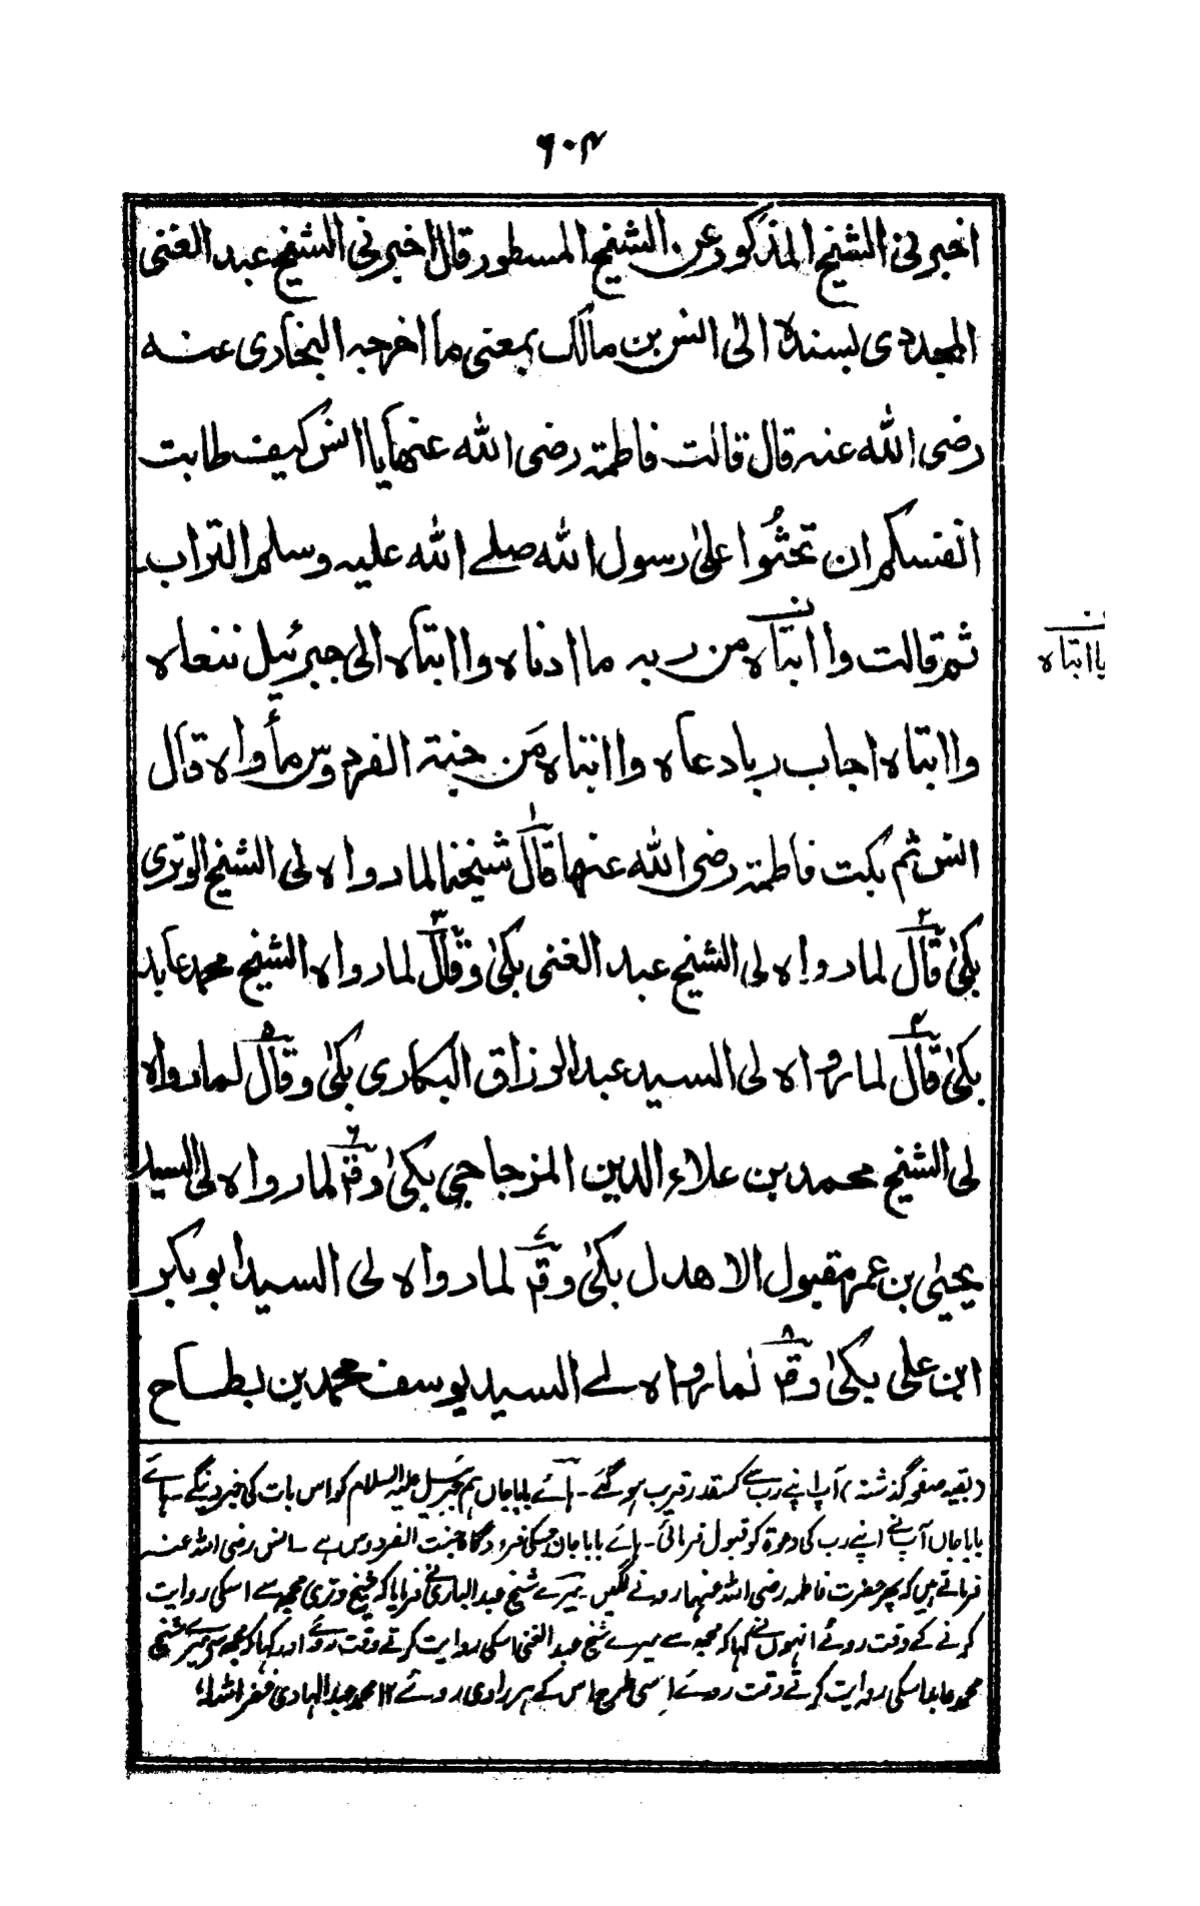 ٦٠٤
اخبرني الشيخ المذكور عن الشيخ المسطور قال اخبرني الشيخ عبد الغني
المجددي بسنده الى انس بن مالك بمعنى ما اخرجه البخاري عنه
رضى الله عنه قال قالت فاطمة رضى الله عنها يا انس كيف طابت
انفسكم ان تحثوا على رسول الله صلے الله عليه وسلم التراب
ثم قالت وا ابتاه من ربه ما ادناه وا ابتاه الى جبرئيل ننعاه
يا ابتاه
وا ابتاه اجاب ربا دعاه وا ابتاه مَن جنة الفردوس مأواه قال
انس ثم بكت فاطمة رضى الله عنها قال ١ شيخنا لما رواه لى الشيخ الوترى
بكىٰ قال ٢ لما رواه لى الشيخ عبد الغنى بكىٰ وقال ٣ لما رواه الشيخ محمد عابد
بكىٰ قال ٤ لما رواه لى السيد عبد الرزاق البكارى بكىٰ وقال ٥ لما رواه
لى الشيخ محمد بن علاء الدين المزجاجي بكىٰ وقم ٦ لما رواه لى السيد
يحيىٰ بن عمر مقبول الاهدل بكىٰ وقم ٧ لما رواه لى السيد ابو بكر
ابن على بكىٰ وقم ٨ لما رواه لے السيد يوسف محمد بن بطاح
(بقیہ صفحہ گذشتہ) آپ اپنے رب سے کسقدر قریب ہو گئے۔ ہائے بابا جاں ہم جبرئیل علیہ السلام کو اس بات کی خبر دینگے۔ ہائے
بابا جاں آپ نے اپنے رب کی دعوۃ کو قبول فرمائی۔ ہائے بابا جان جسکی فرودگاہ جنت الفردوس ہے۔ انس رضی اللہ عنہ
فرماتے ہیں کہ پھر حضرت فاطمہ رضی اللہ عنہا رونے لگیں۔ میرے شیخ عبد الباری نے فرمایا کہ شیخ وتری مجھ سے اسکی روایت
کرنے کے وقت روئے انہوں نے کہا کہ مجھ سے میرے شیخ عبد الغنی اسکی روایت کرتے وقت روئے اور کہا کہ مجھ سے میرے شیخ
محمد عابد اسکی روایت کرتے وقت روئے اسی طرح اس کے ہر راوی روئے ۱۲ محمد عبد الہادی غفر اللہ لہ